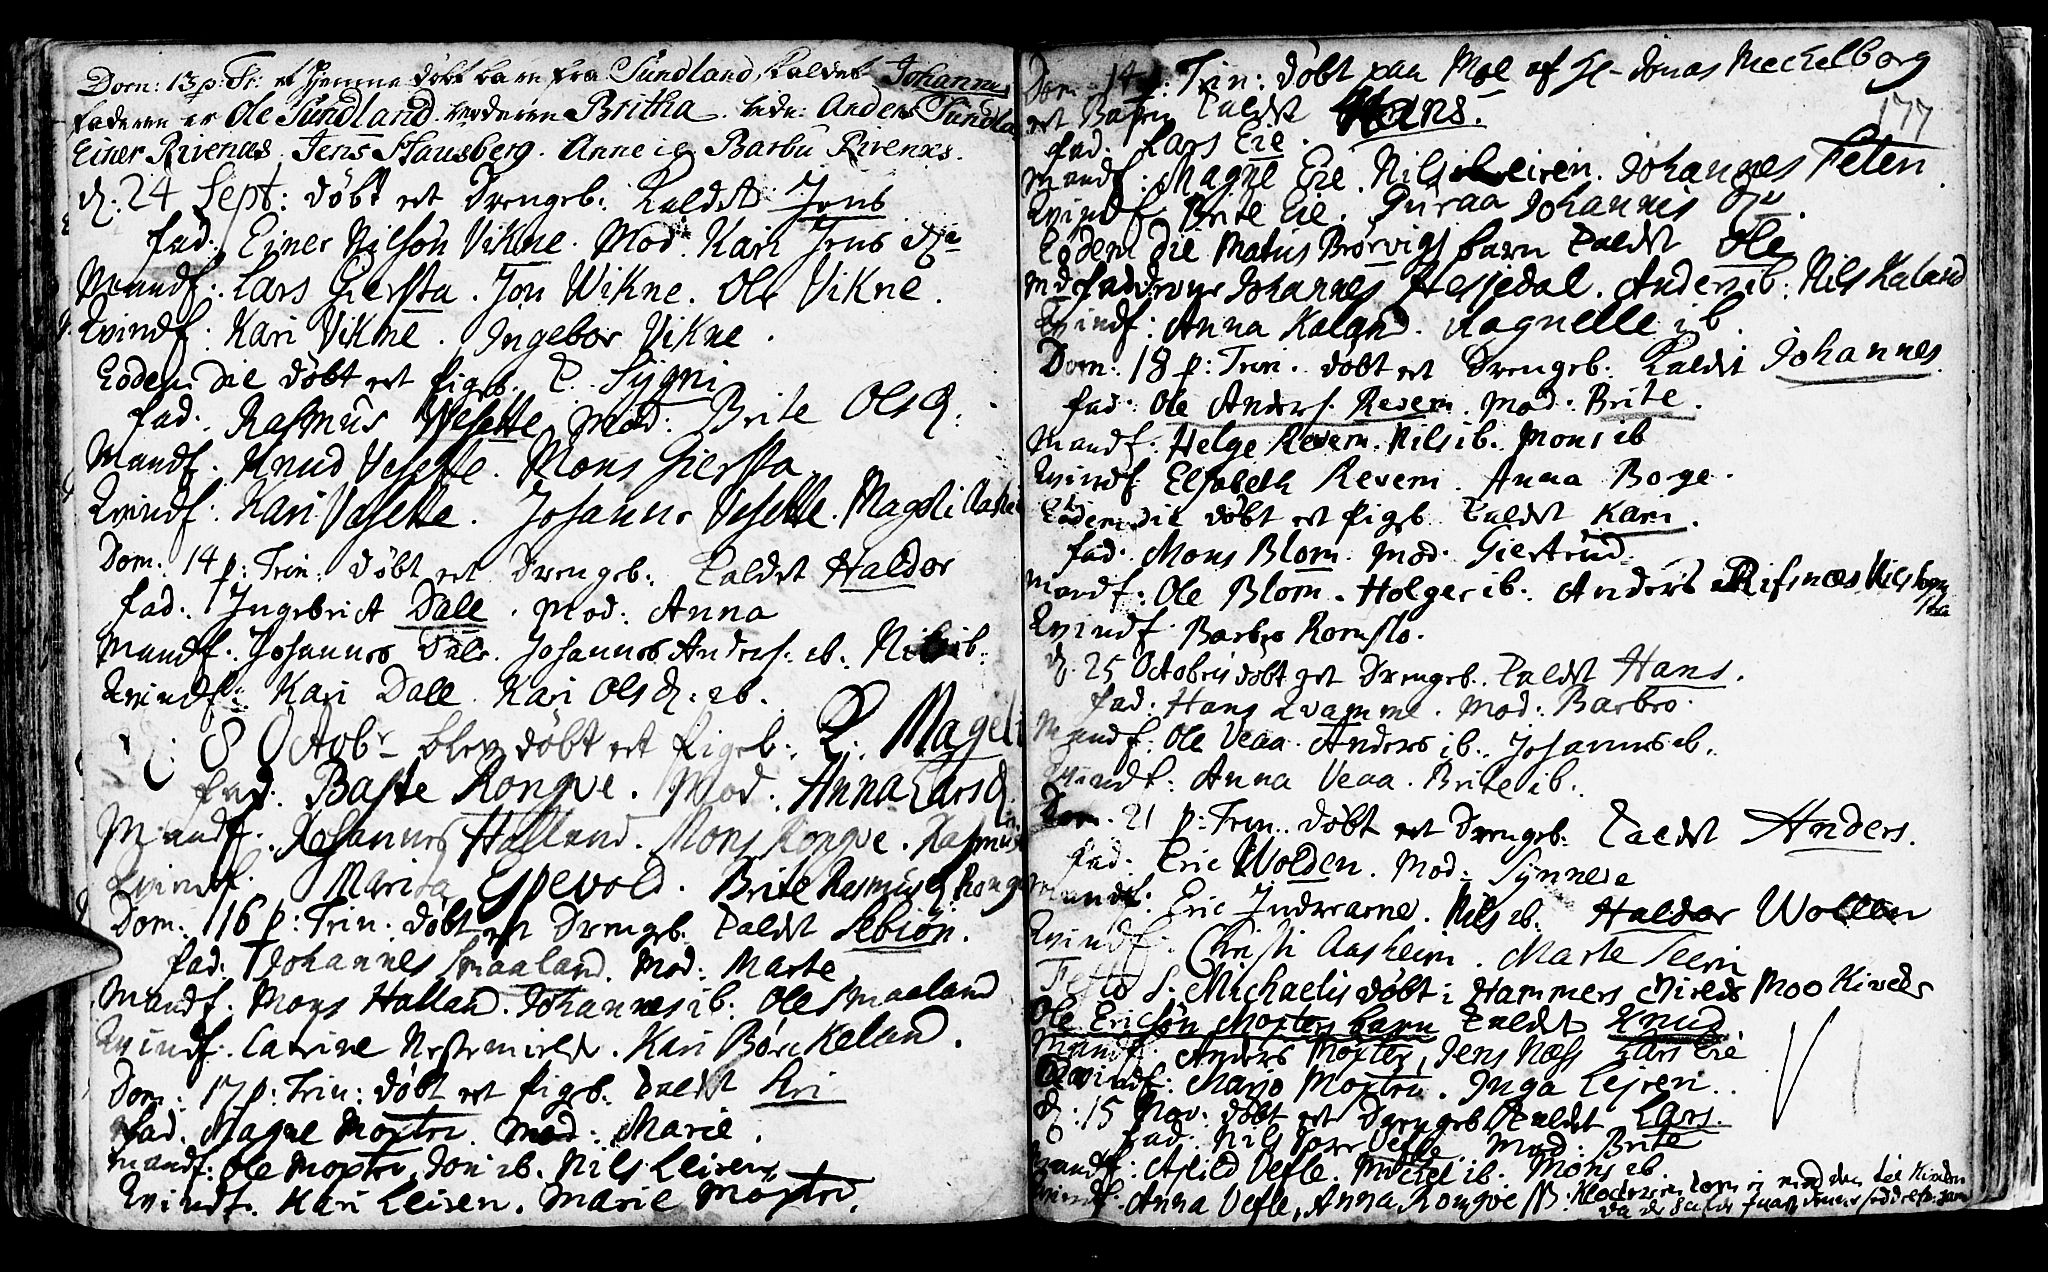 Dom: 13 p: Tr: et hiemme døbt barn fra Sundland, kaldet Johannes
faderen er Ole Sundland. moderen Britha. Anders Sundla
Einer Rivenæs. Jens Hausberg. Anne ib Barbu Rivenæs.
d. 24 Sept: døbt et Drengeb. Kaldet Jens
fad. Einer Nilsøn Vikne. Mod. Kari Jens dr
Mandf. Lars Giersta. Jon Wikne. Ole Vikne.
Qvindf. Kari Vikne. Ingebor Vikne.
Eodem die døbt et pigb. K. Sygni
fad. Rasmus Vesette mod. Brite Ols d.
Mandf. Knud Vesette. Mons Giersta.
Qvindf. Kari Vesette. Johanne Vesette. Magdli
Dom. 14 p: Trin: døbt et Drengeb. Kaldet Haldor
fad. Ingebrict Dale. Mod: Anna
Mandf. Johannes Dale. Johannes Anders. ib. Nils ib.
Qvindf: Kari Dale. Kari Ols d. ib.
d. 8 Octobr blev døbt et pigeb. K. Mageli
fad. Baste Rongve. Mod. Anna Lars d.
Mandf. Johannes Halland. Mons Rongve. Rasmus
Qvindf. Marita Espevold. Brite Rasmus d. Rongve
Dom. 16 p: Trin. døbt et Drengeb. Kaldet Sebiøn.
fad. Johannes Smaaland. Mod: Marte
Mandf. Mons Halland. Johannes ib: Ole Smaaland
Qvindf. Catrine . Kari Børckeland.
Dom: 17 p: Trin: døbt et pigb. Kaldet Siri
fad. Magne Moxter. Mod: Marie.
Mandf: Ole Moxter, Jon ib. Nils Leiren
Qvindf. Kari Leiren. Marie Moxter.
Dom 14 p: Trin: døbt paa Moe af Hr Jonas Mechelborg
177
et Barn Kaldet Hans.
fad. Lars Eie.
Mandf: Magne Eie. Nils Leiren. Johannes Feten.
Qvindf Brite Eie. Guraa Johannis dr.
Eodem die Matis Brørvigs barn Kaldet Ole
Johannes Hesjedal. Anders ib. Nils Kaland
Qvindf: Anna Kaland. Ragnelle ib.
Dom: 18 p: Trin. døbt et Drengeb. Kaldet Johannes.
fad. Ole Anders. Revem. Mod. Brite.
Mandf: Helge Revem. Nils ib. Mons ib
Qvindf Elsebeth Revem. Anna Borge.
Eodem die døbt et pigb Kaldet Kari.
fad. Mons Blom. Mod. Giertrud.
Mandf: Ole Blom. Holger ib. Anders Rifsnæs Nils
Qvindf. Barbro Romslo.
d. 25 Octobris døbt et Drengeb. Kaldet Hans.
fad. Hans Qvamme. Mod: Barbro.
Mandf. Ole Veaa. Anders ib. Johannes ib.
Qvindf: Anna Veaa. Brite ib.
Dom. 21 p: Trin. døbt et Drengeb. Kaldet Anders.
fad. Eric Wolden. Mod: Synneve
Mandf. Eric Indrearne. Nils ib. Haldor Wollen
Qvindf: Christi Aasheim. Marte Teeri
Festo S. Michaelis døbt i Hammers Moo Kircke
Ole Ericsøn Moxters barn Kaldet Knud.
Mandf. Anders Moxter, Jens Næss Lars Eie
Qvindf: Mario Moxter. Inga Lejren.
d: 15 Nov: døbt et Drengeb. Kaldet Lars.
fad. Nils Vefle. Mod: Brite
Mandf: Arild Vefle. Mickel ib. Mons ib.
Qvindf. Anna Vefle, Anna Rongve